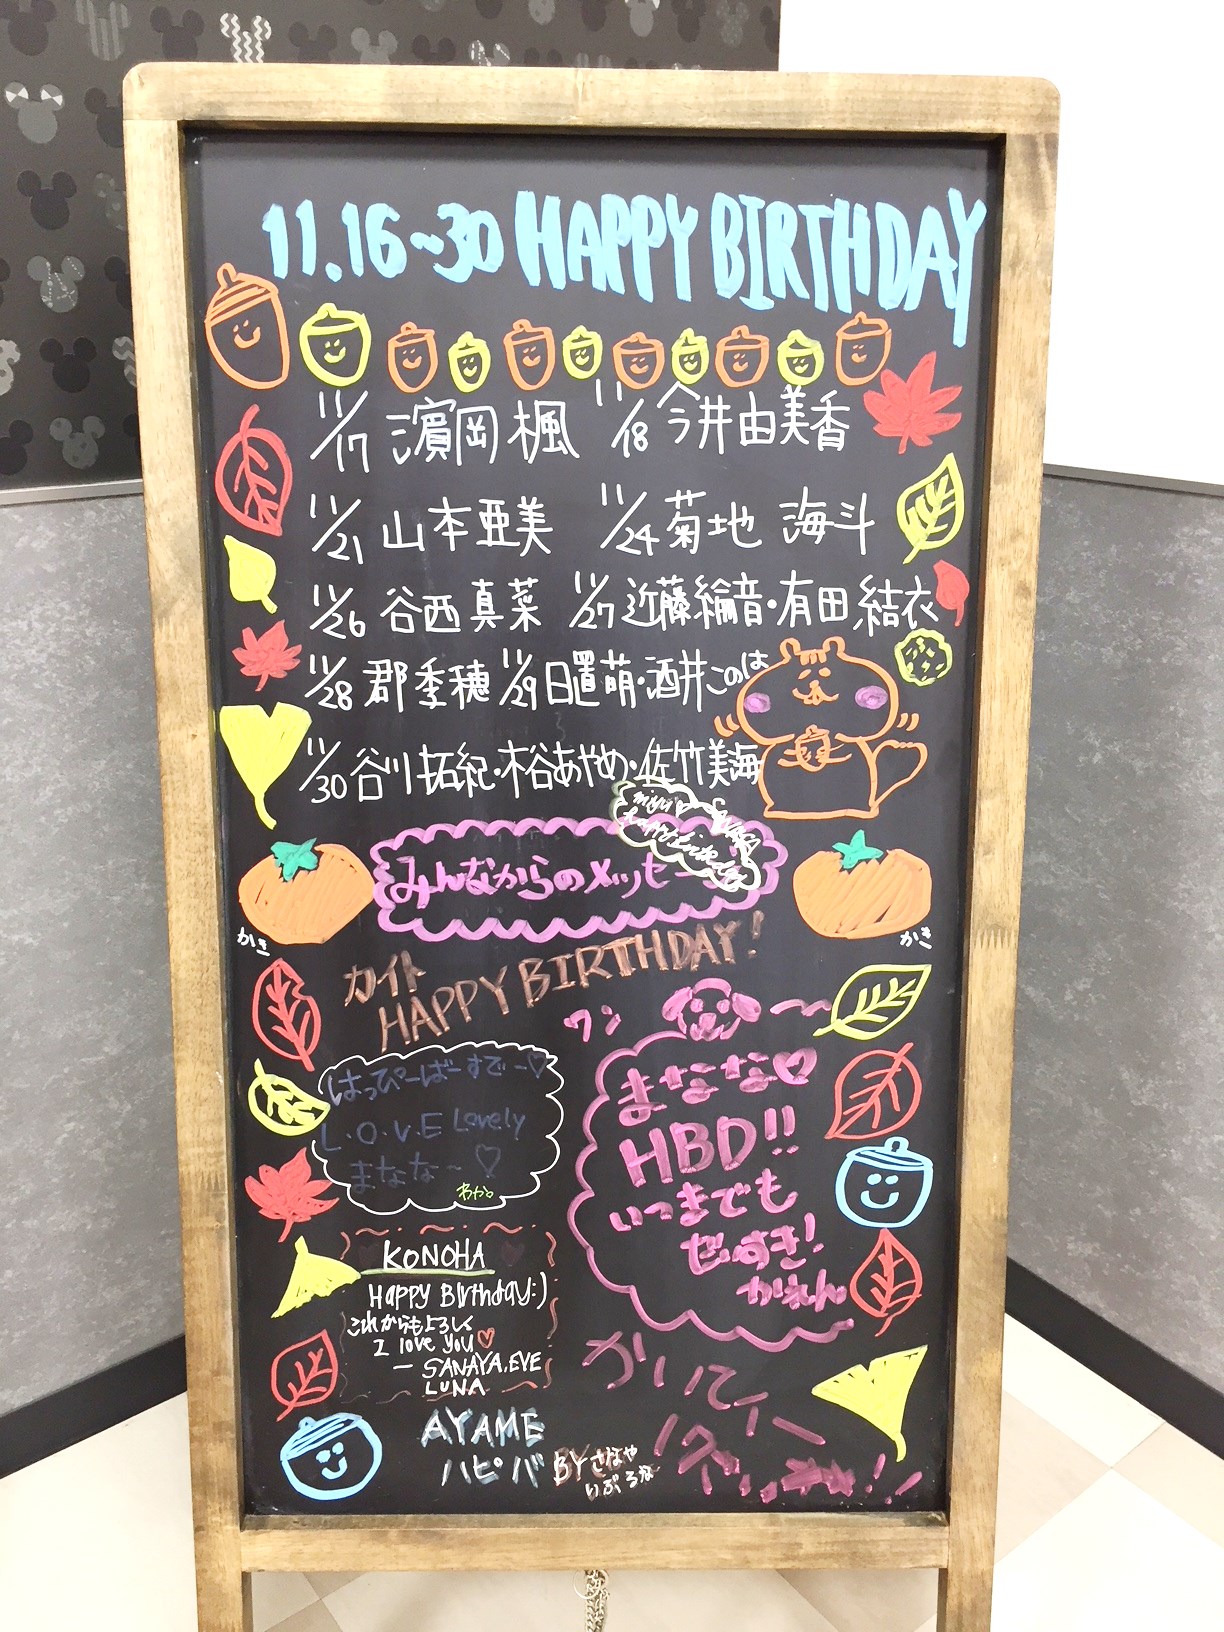 11.16~30 HAPPY BIRTHDAY
11/17 濱岡 楓 11/18 今井由美香
11/21 山本亜美 11/24 菊地 海斗
11/26 谷西真菜 11/27 近藤綸音・有田結衣
11/28 郡季穂 11/29 日置萌・酒井このは
11/30 谷川拓紀・木谷あやめ・佐竹美海
miyu
happy birthday
みんなからのメッセージ
かき
かき
カイト
HAPPY BIRTHDAY!
ワン
はっぴーばーすでー♡
L.O.V.E Lovely
まなな~♡
わか。
まなな♡
HBD!!
いつまでも
だいすき!
かれん
KONOHA
Happy Birthday:)
これからもよろしく
I love you♡
ー SANAYA.EVE
LUNA
かいて
AYAME
ハピバ BY さなや
いぶ るな